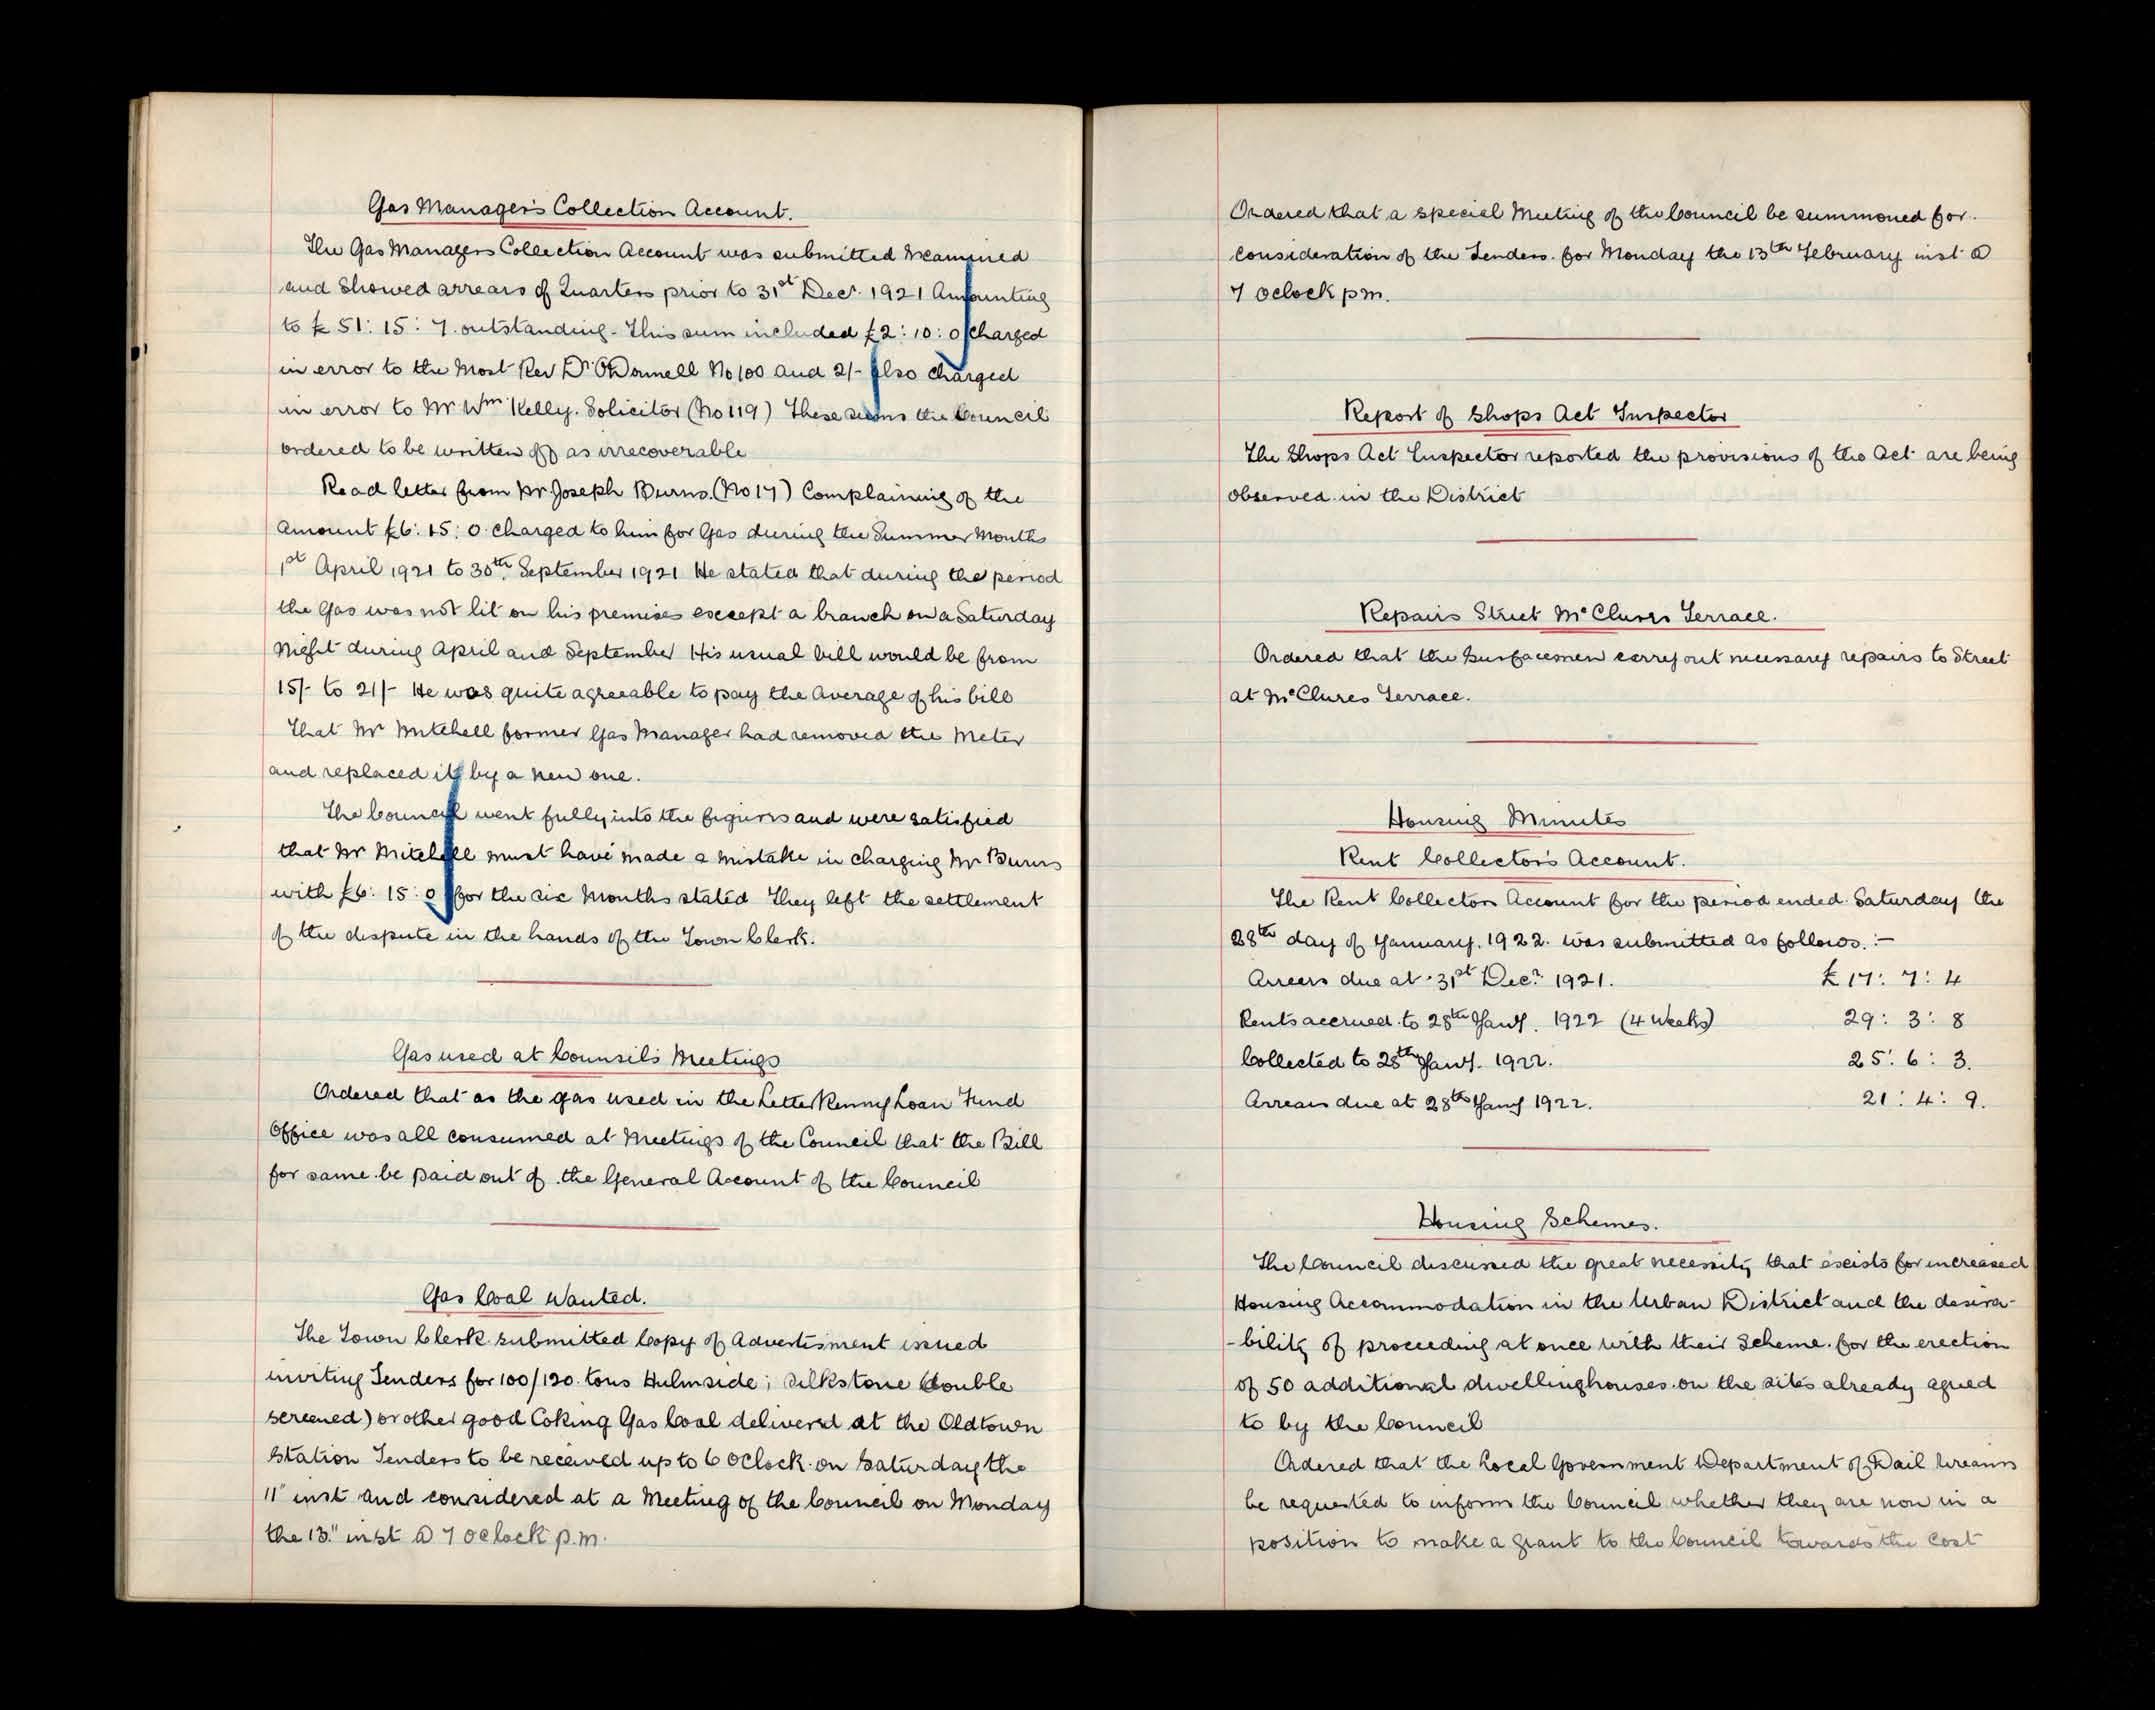 Gas Manager's Collection Account.
The Gas Managers Collection Account was submitted examined
and showed arrears of Quarters prior to 31st Decr. 1921 Amounting
to £51:15:7. outstanding. This sum included £2:10:0 charged
in error to the Most Rev Dr. O'Donnell No 100 and 2/- also charged
in error to Mr Wm Kelly. Solicitor (No 119) These sums the Council
ordered to be written off as irrecoverable
Read letter from Mr Joseph Burns. (No 17) Complaining of the
amount £6:15:0. charged to him for Gas during the Summer Months
1st April 1921 to 30th September 1921 He stated that during the period
the Gas was not lit on his premises except a branch on a Saturday
Night during April and September His usual bill would be from
15/- to 21/- He was quite agreeable to pay the Average of his bill
That Mr Mitchell former Gas Manager had removed the Meter
and replaced it by a new one.
The Council went fully into the figures and were satisfied
that Mr Mitchell must have made a mistake in charging Mr Burns
with £6:15:0 for the six Months stated They left the settlement
of the dispute in the hands of the Town Clerk.
Gas used at Counsil's Meetings
Ordered that as the gas used in the Letterkenny Loan Fund
Office was all consumed at Meetings of the Council that the Bill
for same be paid out of the General Account of the Council
Gas Coal Wanted.
The Town Clerk submitted Copy of Advertisment issued
inviting Tenders for 100/120 tons Hulmside; Silkstone (double
screened) or other good Coking Gas Coal delivered at the Oldtown
Station Tenders to be received up to 6 oclock on Saturday the
11" inst and considered at a Meeting of the Council on Monday
the 13" inst @ 7 oclock p.m.
Ordered that a special Meeting of the Council be summoned for
consideration of the Tenders for Monday the 13th February inst @
7 oclock pm.
Report of Shops Act Inspector
The Shops Act Inspector reported the provisions of the Act are being
observed in the District
Repairs Street McClures Terrace.
Ordered that the Surfacemen carry out necessary repairs to Street
at McClures Terrace.
Housing Minutes
Rent Collector's Account.
The Rent Collectors Account for the period ended Saturday the
28th day of January. 1922. was submitted as follows.:-
Arrears due at 31st Decr. 1921. £17:7:4
Rents accrued to 28th Jany. 1922 (4 weeks) 29:3:8
Collected to 28th Jany. 1922. 25:6:3.
Arrears due at 28th Jany 1922. 21:4:9.
Housing Schemes.
The Council discussed the great necessity that exists for increased
Housing Accommodation in the Urban District and the desira-
-bility of proceeding at once with their Scheme for the erection
of 50 additional dwellinghouses on the sites already agreed
to by the Council
Ordered that the Local Government Department of Dail Eireann
be requested to inform the Council whether they are now in a
position to make a grant to the Council towards the cost